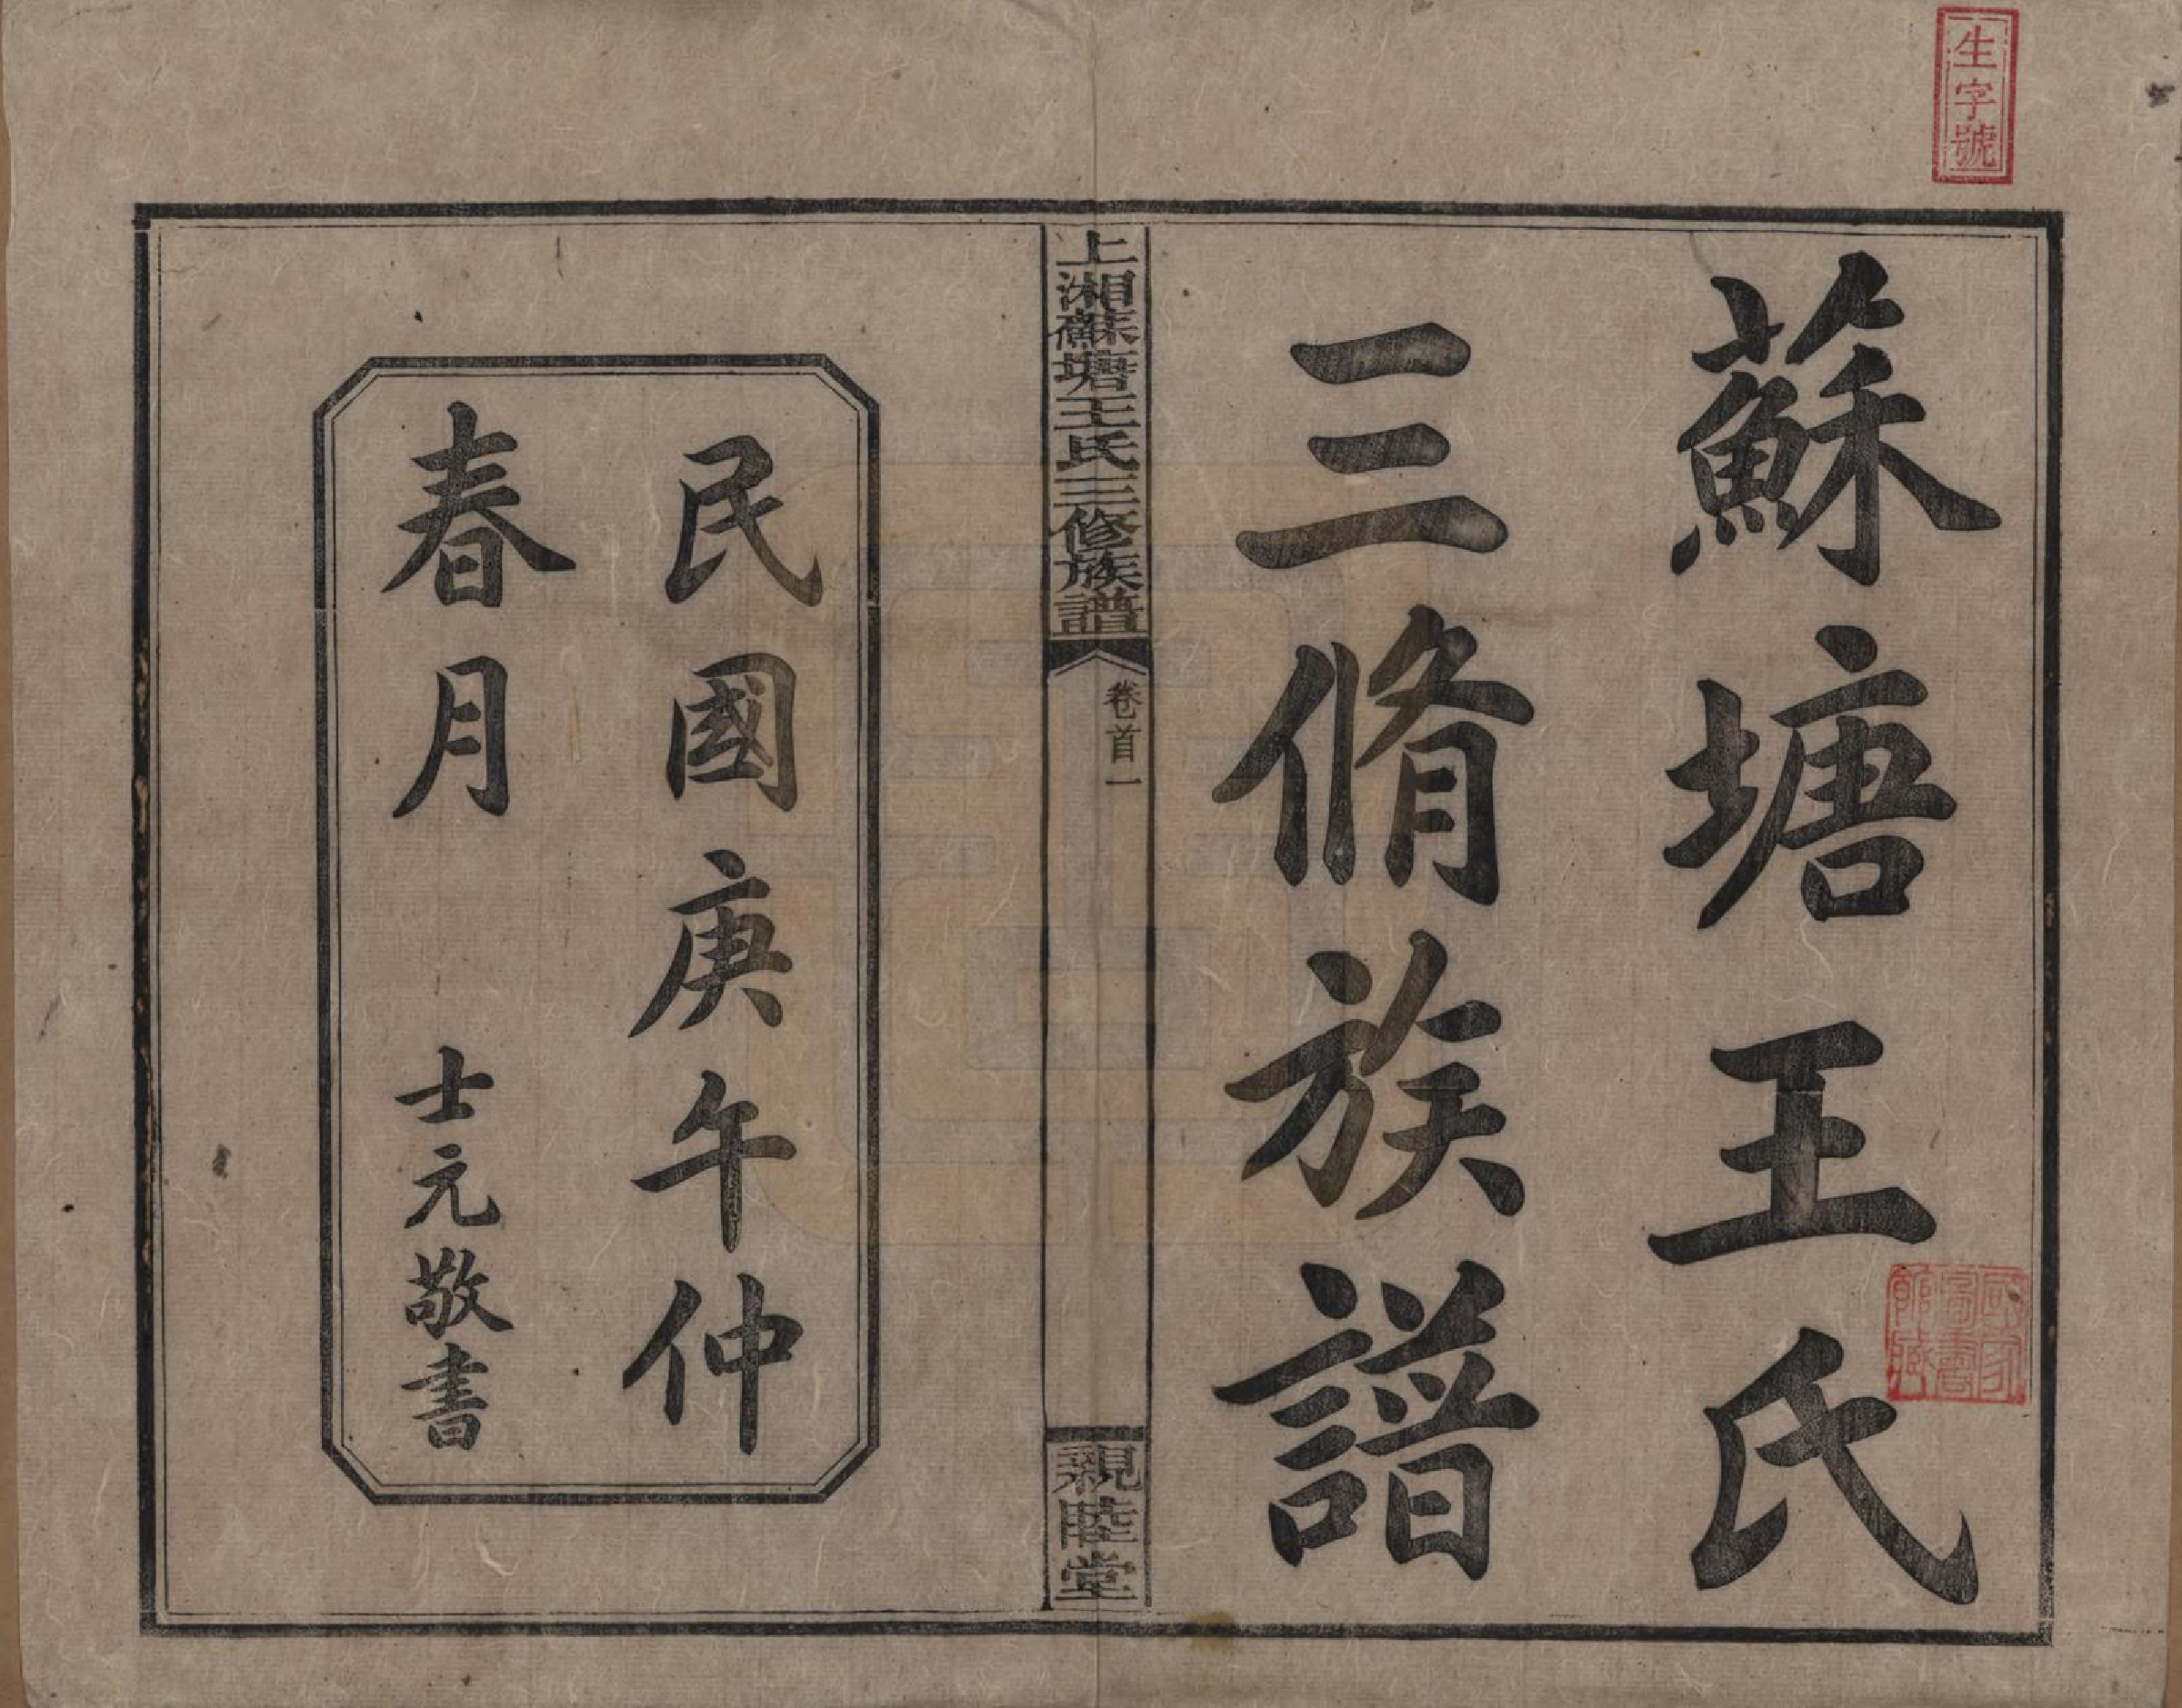 生字號
蘇塘王氏
三脩族譜
上湘蘇塘王氏三修族譜
卷首一
親睦堂
民國庚午仲
春月
士元敬書
國家
圖書
館藏